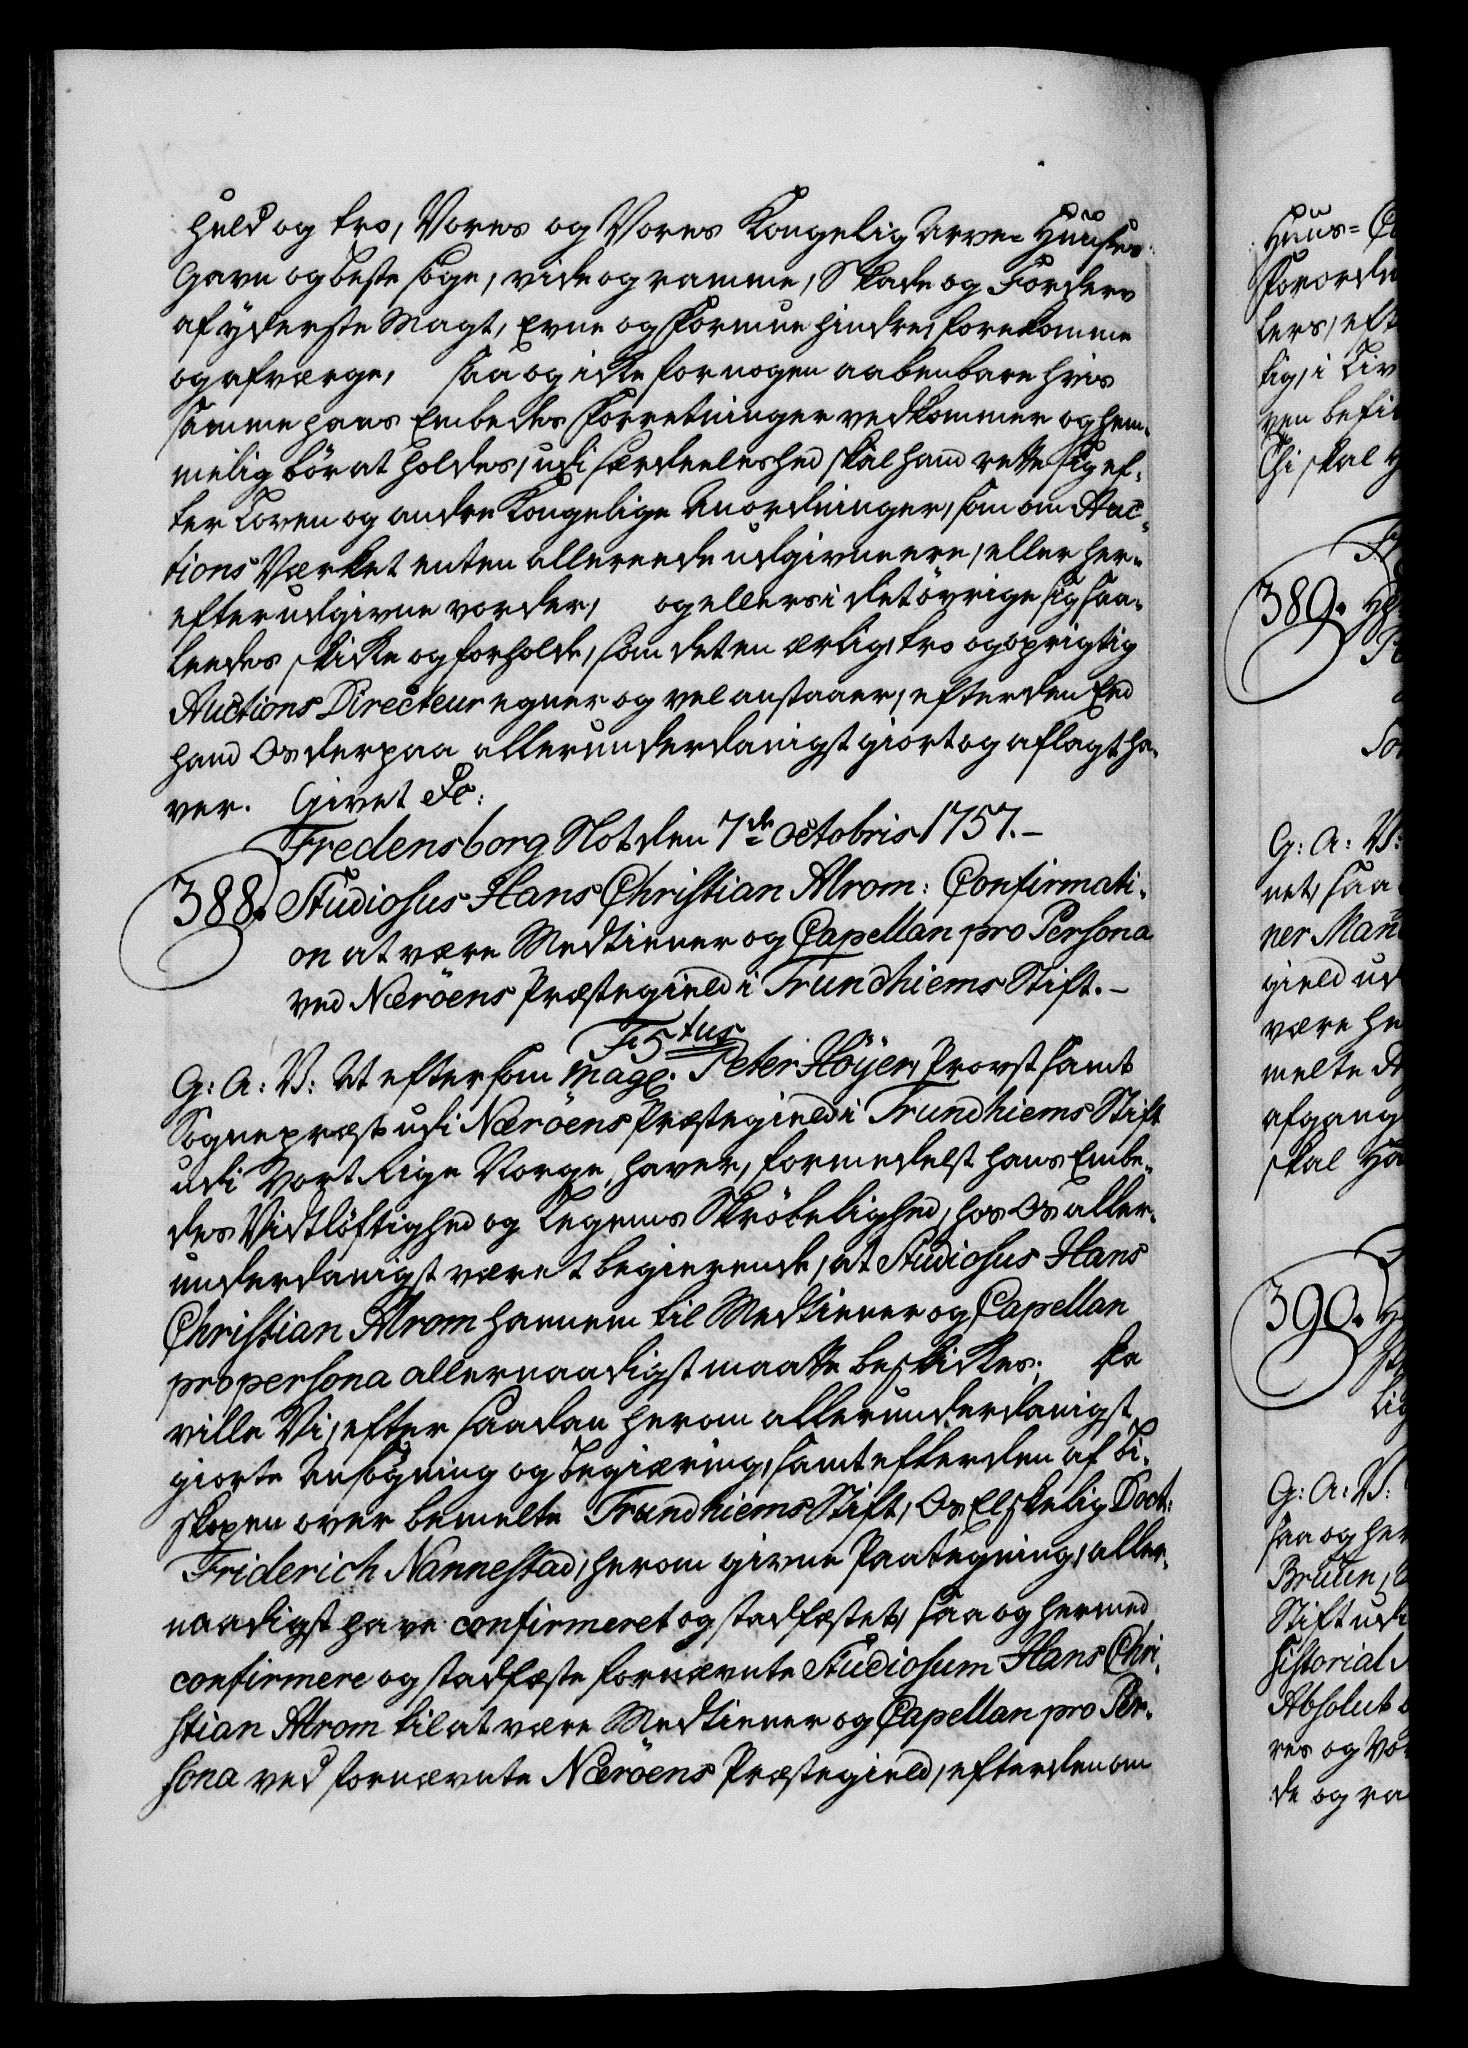 huld og tro, Vores og Vores Kongelig Arve- Huuses
Gavn og beste søge, vide og ramme, Skade og Forderv
af yderste Magt, Evne og Formue hindre, forekomme
og afværge, saa og icke for nogen aabenbare hvis
samme hans Embedes Forretninger vedkommer og hem-
melig bör at holdes, udi særdeeleshed skal hand rette sig ef-
ter Loven og andre Kongelige Anordninger, som om Auc-
tions Værket enten allereede udgivne ere, eller her-
efter udgivne vorder, og ellers i det övrige sig saa-
leedes skicke og forholde, som det en ærlig, tro og oprigtig
Auctions Directeur egner og vel anstaaer, efter den Eed
hand Os derpaa allerunderdanigst giort og aflagt ha-
ver. Givet &c:
Fredensborg Slot den 7de Octobris 1757.-
388. Studiosus Hans Christian Alrom: Confirmati-
on at være Medtiener og Capellan pro Persona
ved Næröens Præstegield i Trundhiems Stift.-
F5tus
G: A: V: At eftersom Mag. Peter Höyer, Provst samt
Sognepræst udi Næröens Præstegield i Trundhiems Stift
udi Vort Rige Norge, haver, formedelst hans Embe-
des Vidtlöftighed og Legems Skröbelighed, hos Os aller-
underdanigst været begierende, at Studiosus Hans
Christian Alrom hannem til Medtiener og Capellan
pro persona allernaadigst maatte beskickes; Da
ville Vi, efter saadan herom allerunderdanigst
giorte Ansögning og Begiæring, samt efter den af Bi-
skopen over bemelte Trundhiems Stift, Os Elskelig Doct:
Friderich Nannestad, herom givne Paategning, aller-
naadigst have confirmeret og stadfæstet, saa og hermed
confirmere og stadfæste fornævnte Studiosum Hans Chri-
stian Alrom til at være Medtiener og Capellan pro Per-
sona ved fornævnte Næröens Præstegield, efter den om
Huus=
389.
G: A: V:
net, saa
ner Man
gield ud
være he
melte
afgang
skal
390.
G: A: V:
saa og her
Bruun,
Stift udi
sistorial
Absolut
res og Vor
de og ra